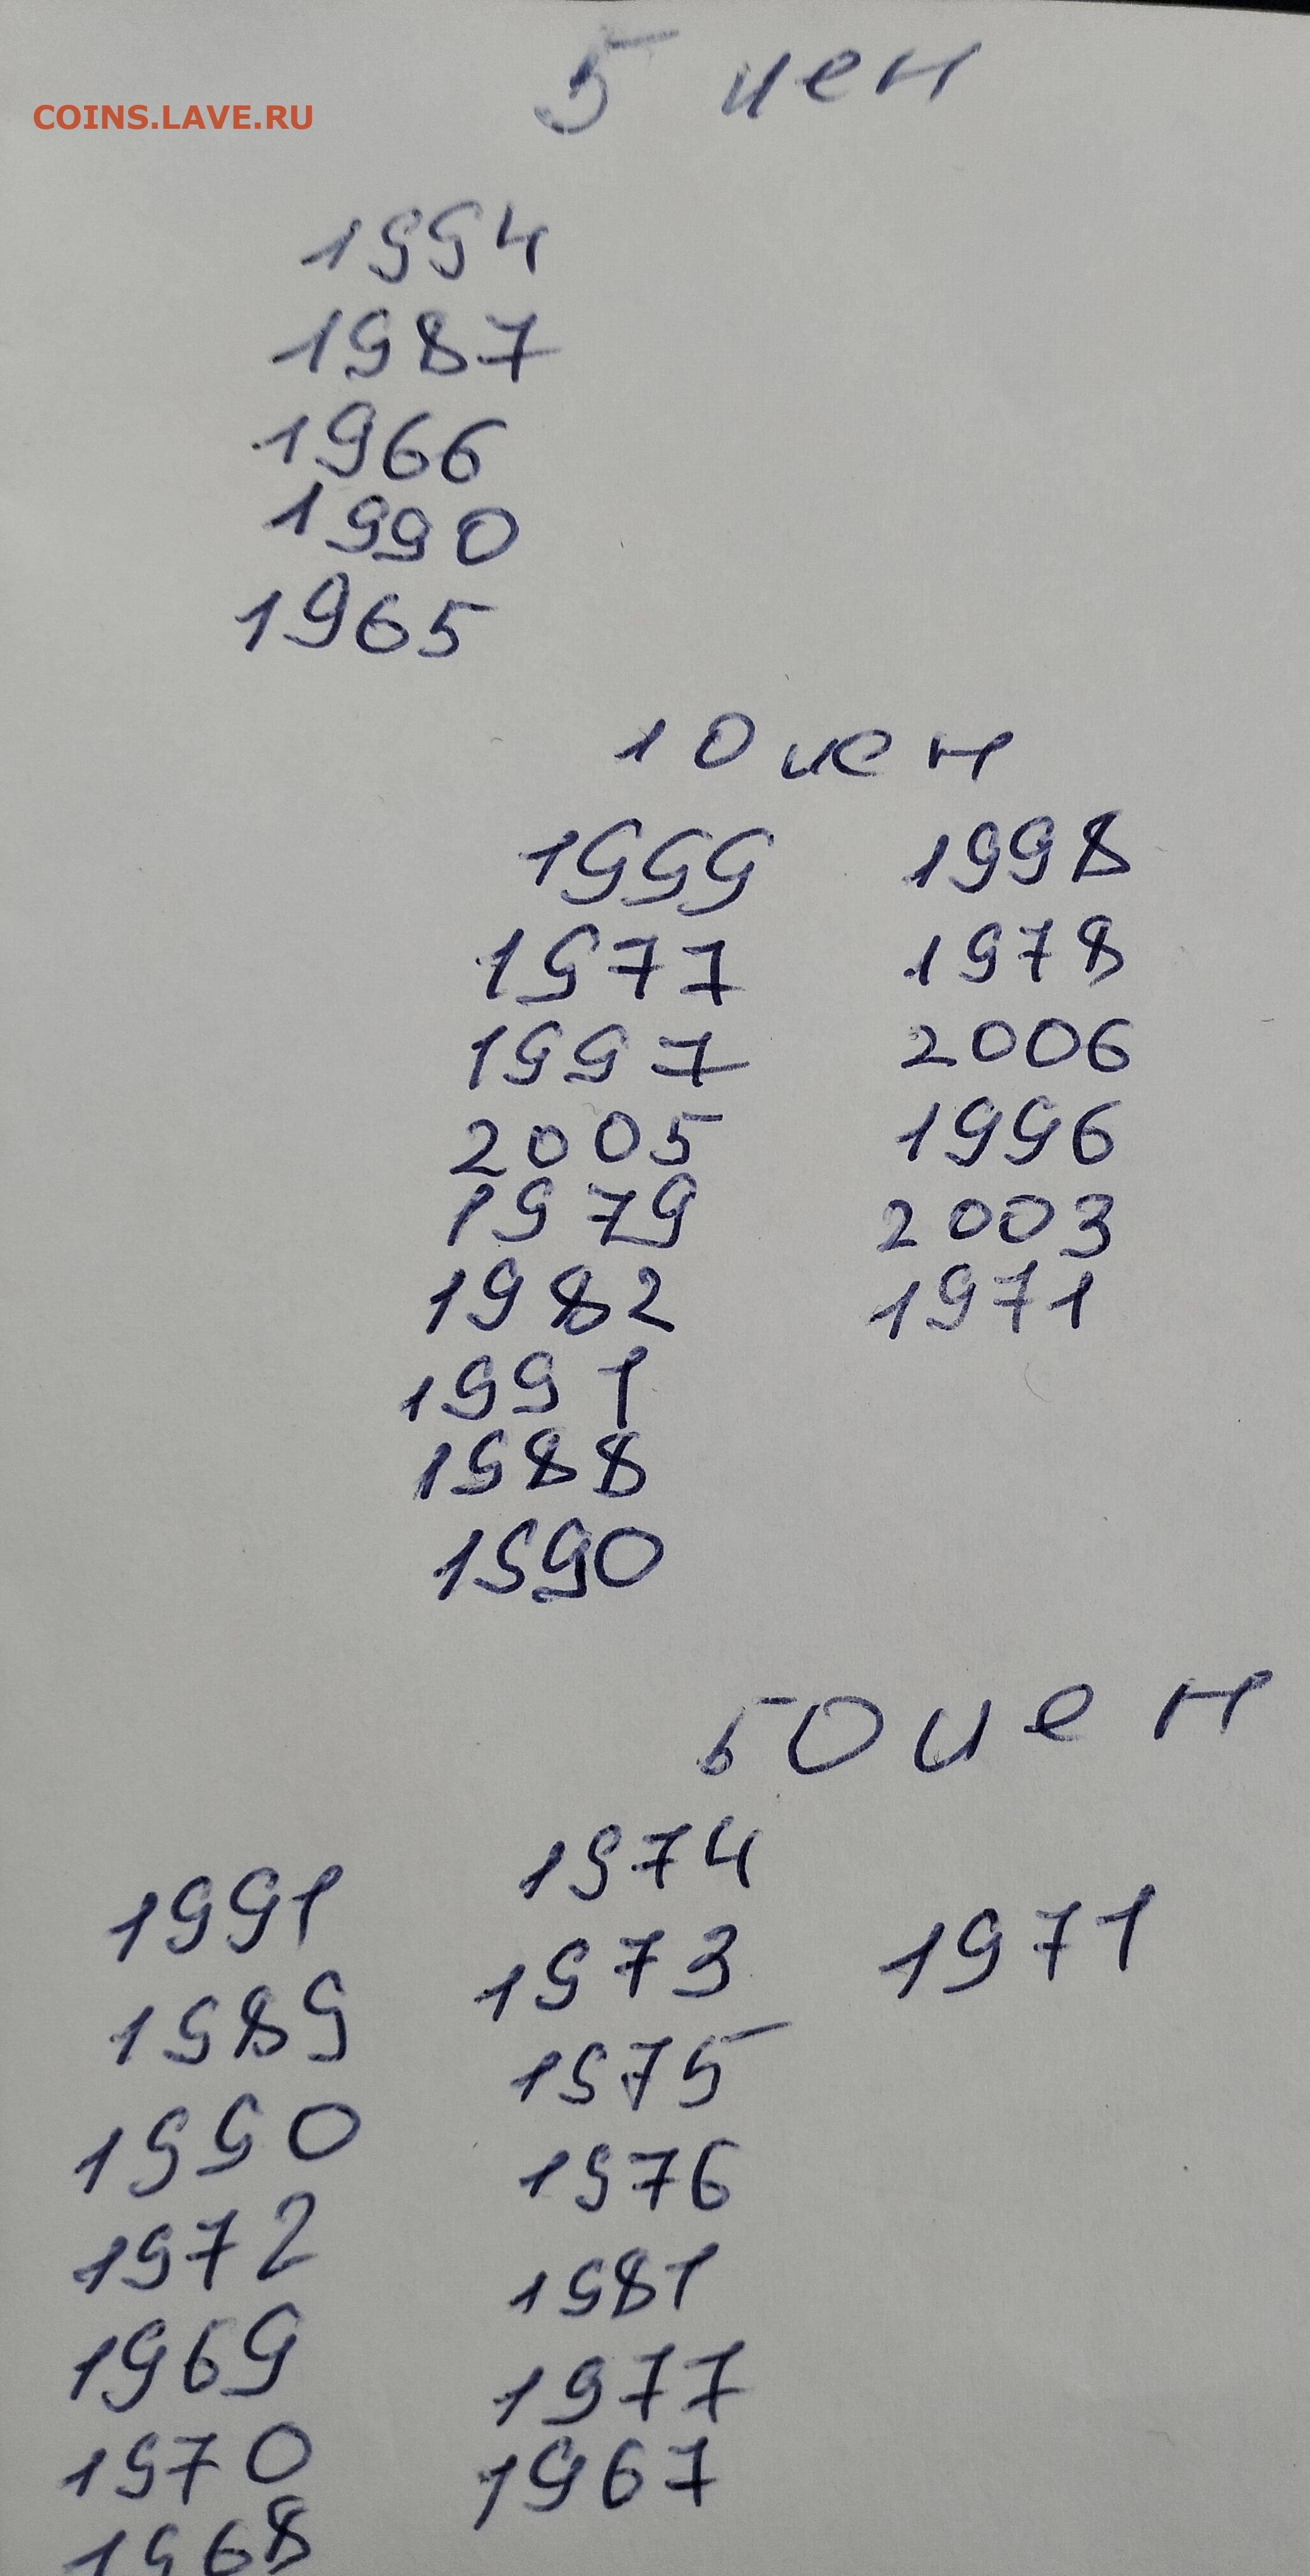 COINS.LAVE.RU
5 иен
1994
1987
1966
1990
1965
10 иен
1999 1998
1977 1978
1997 2006
2005 1996
1979 2003
1982 1971
1991
1988
1990
50 иен
1991 1974 1971
1989 1973
1990 1975
1972 1976
1969 1981
1970 1977
1968 1967